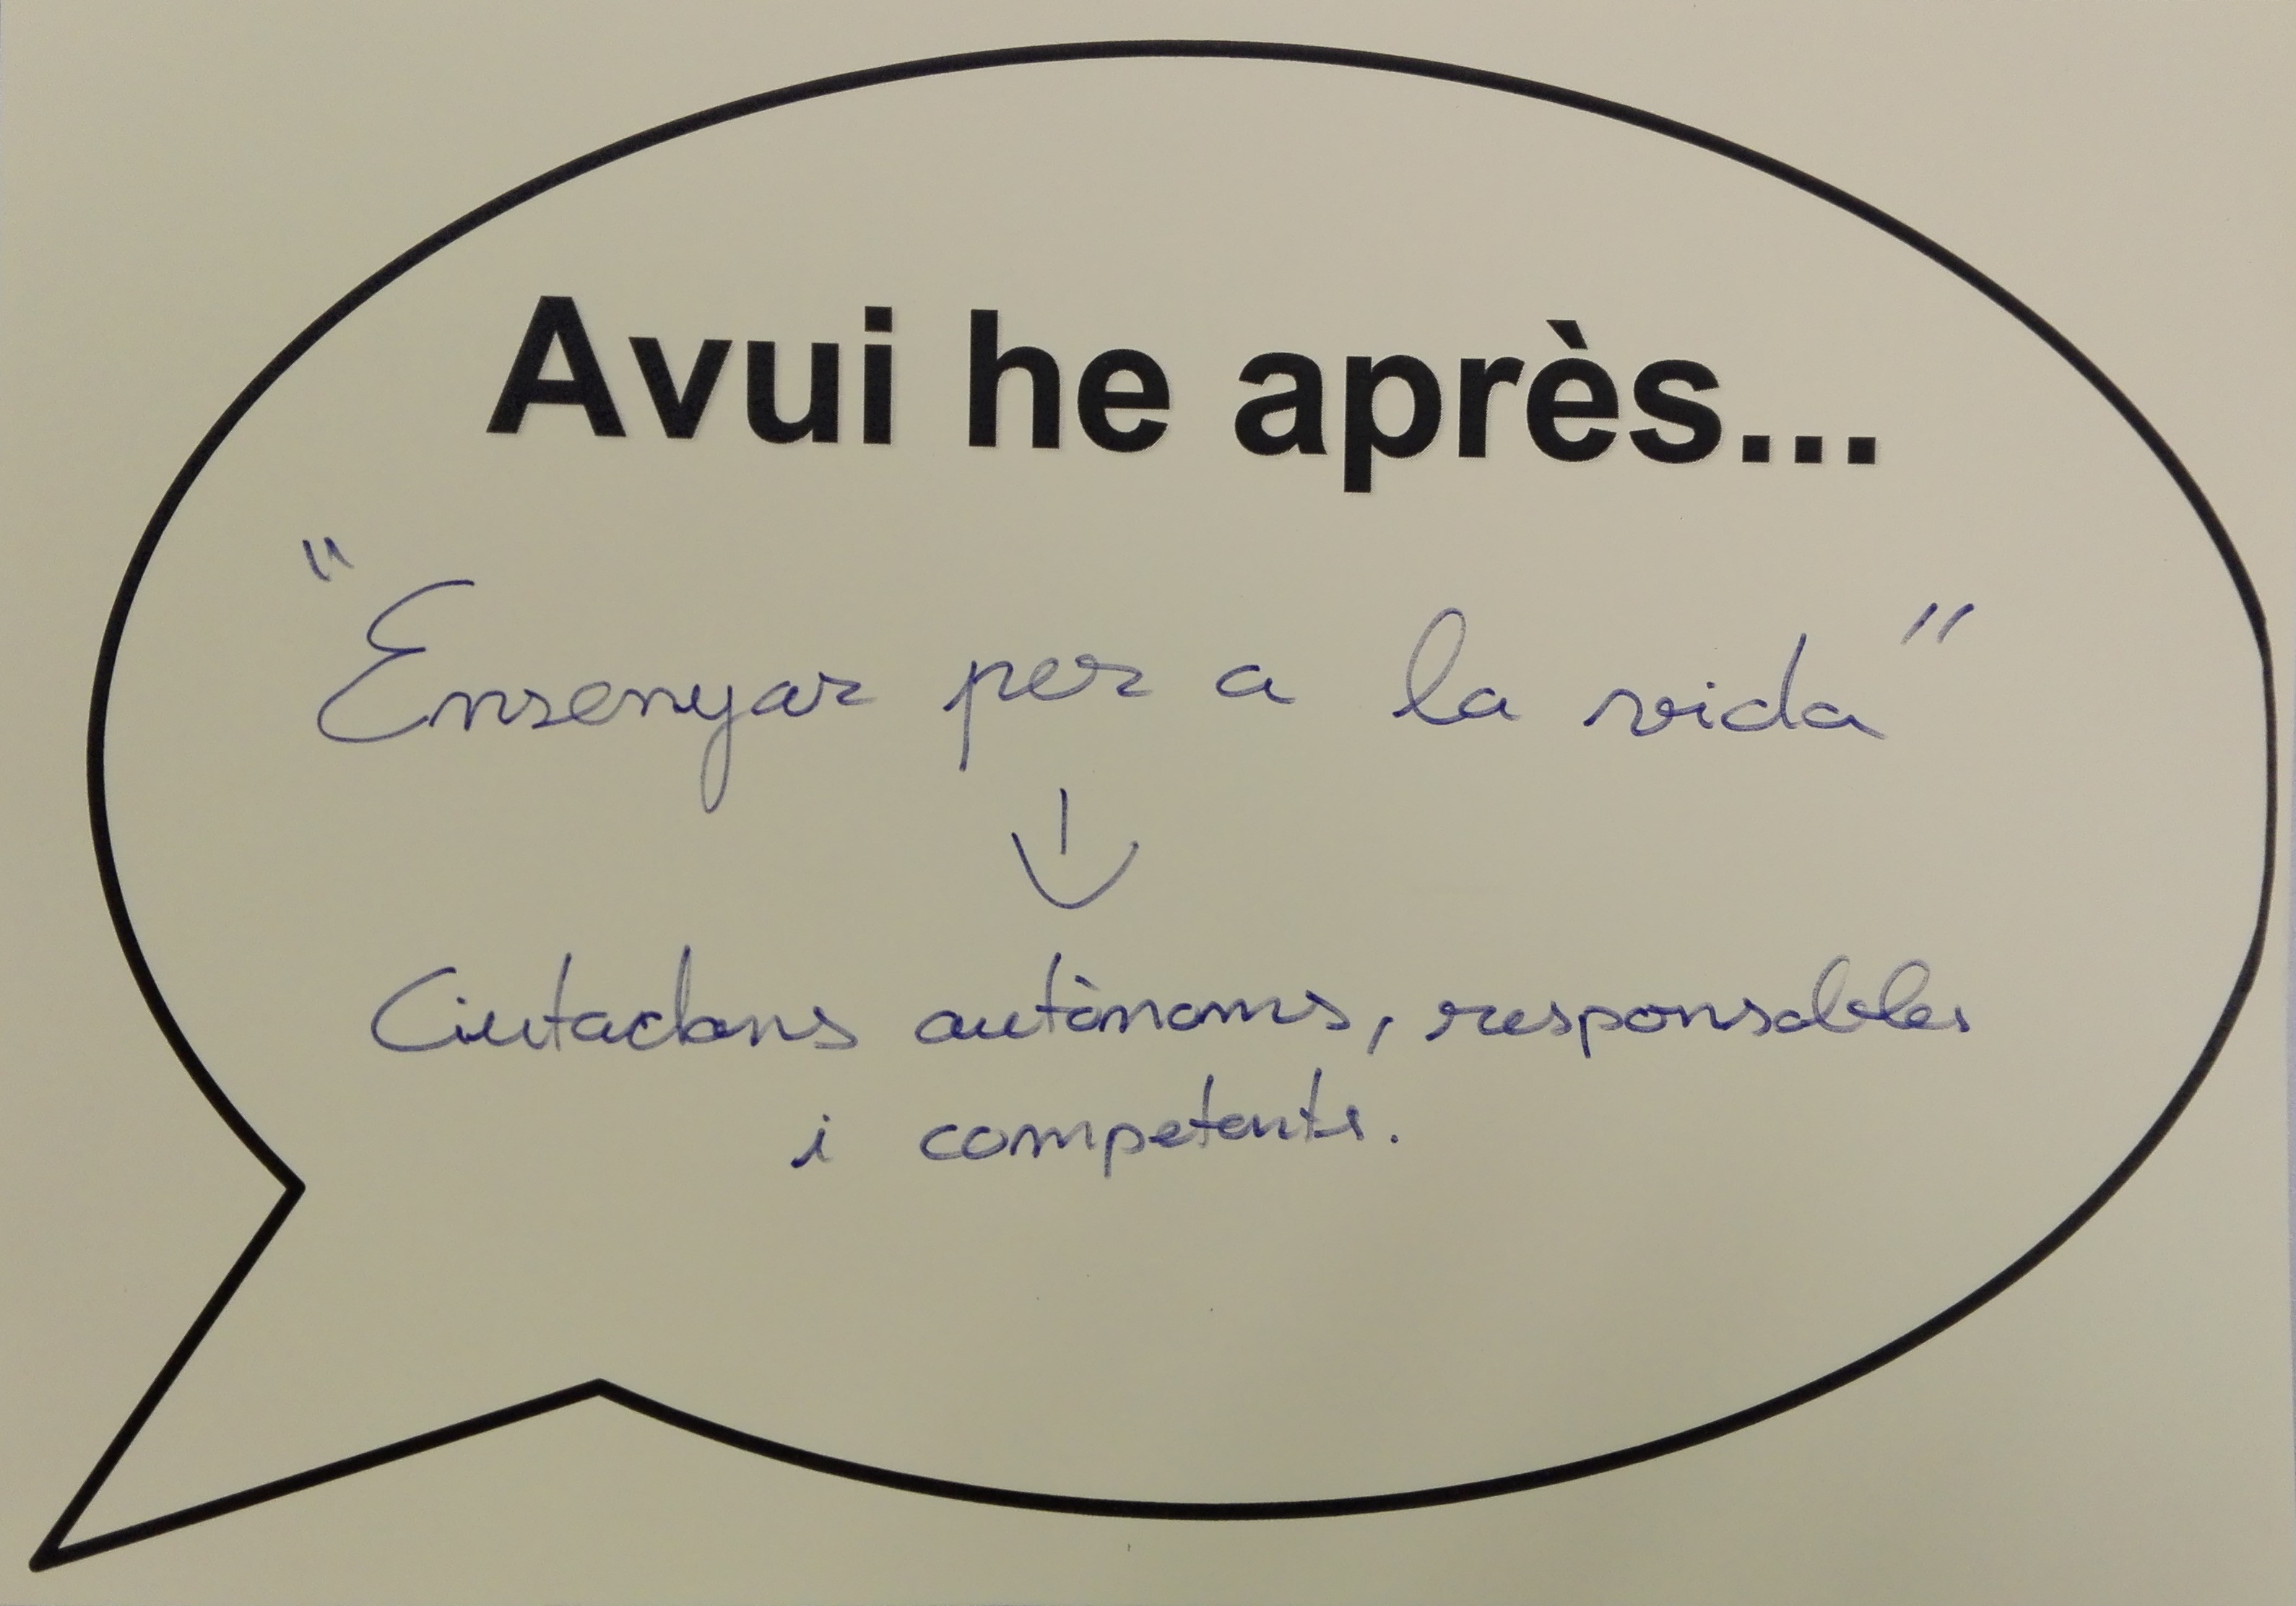 Avui he après...
"Ensenyar per a la vida"
↓
Ciutadans autònoms, responsables
i competents.